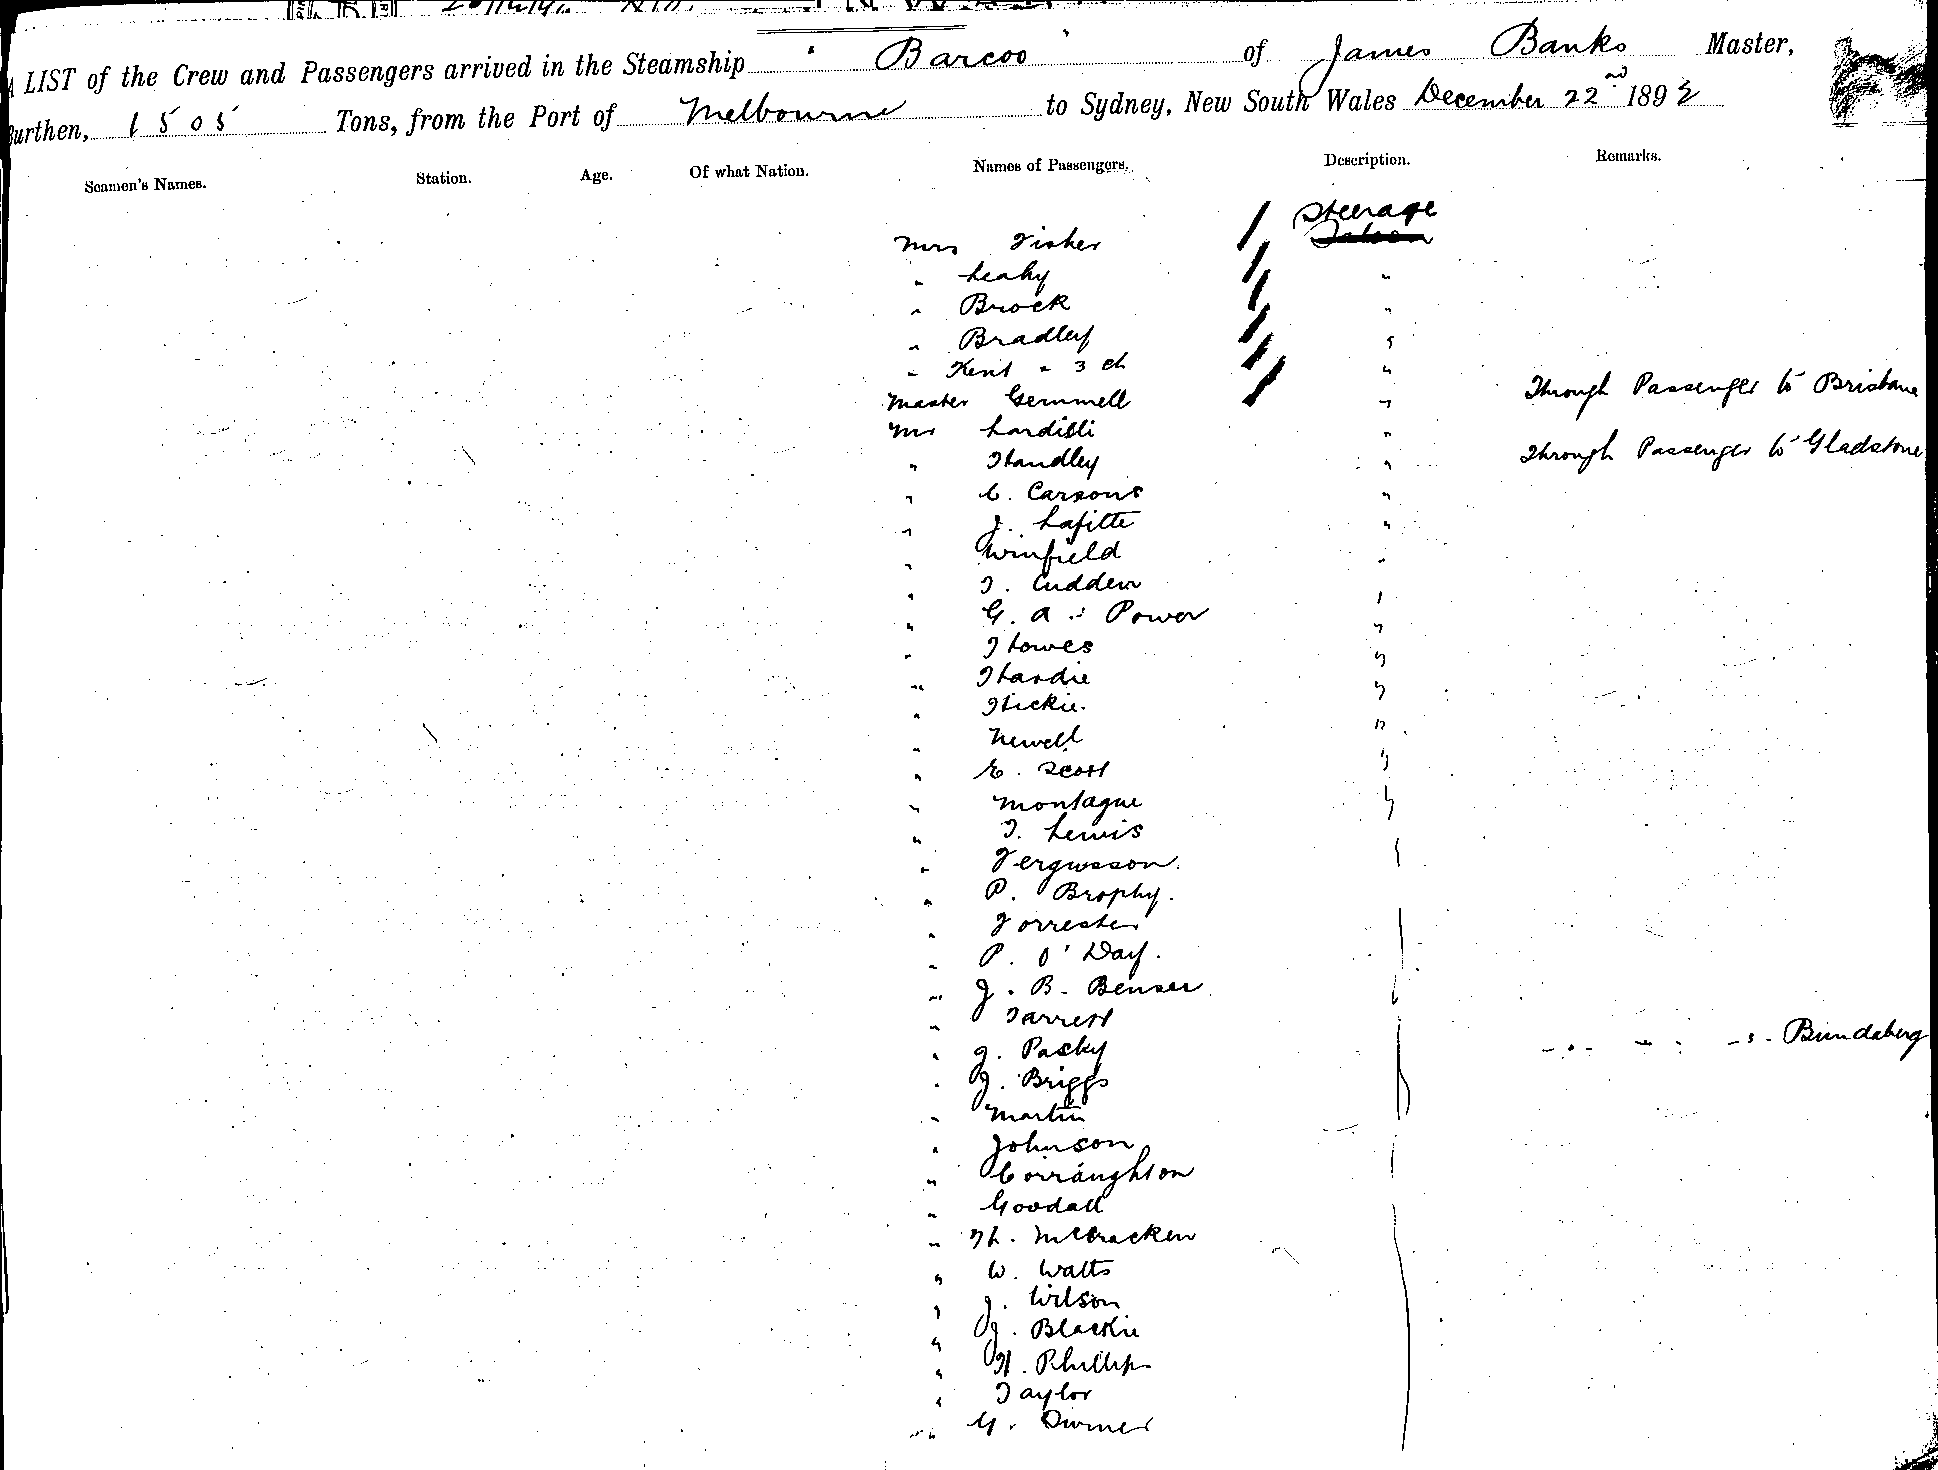 A LIST of the Crew and Passengers arrived in the Steamship "Barcoo" of James Banks Master,
Burthen, 1505 Tons, from the Port of Melbourne to Sydney, New South Wales December 22nd 1892
Seamen's Names. Station. Age. Of what Nation. Names of Passengers. Description. Remarks.
Steerage
Mrs Fisher
" Leahy "
" Brock "
" Bradley "
" Kent " 3 ch "
Master Gemmell " Through Passenger to Brisbane
Mr "
" Handley " Through Passenger to Gladstone
" C. Carsons "
" J. Lafitte "
" Winfield "
" T. Cudden "
" G. A. Power "
" Howes "
" Hardie "
" Hickie. "
" Newell "
" E. Scott "
" Montague "
" T. Lewis
" Fergusson.
" P. Brophy.
" Forrester
" P. O'Day.
" J. B. Benser
" Jarrett
" J. Pasky " " " Bundaberg
" J. Briggs
" Martin
" Johnson
" Corraughton
" Goodall
" McCracken
" W. Watts
" J. Wilson
" J. Blackie
" H. Phillips
" Taylor
" G.